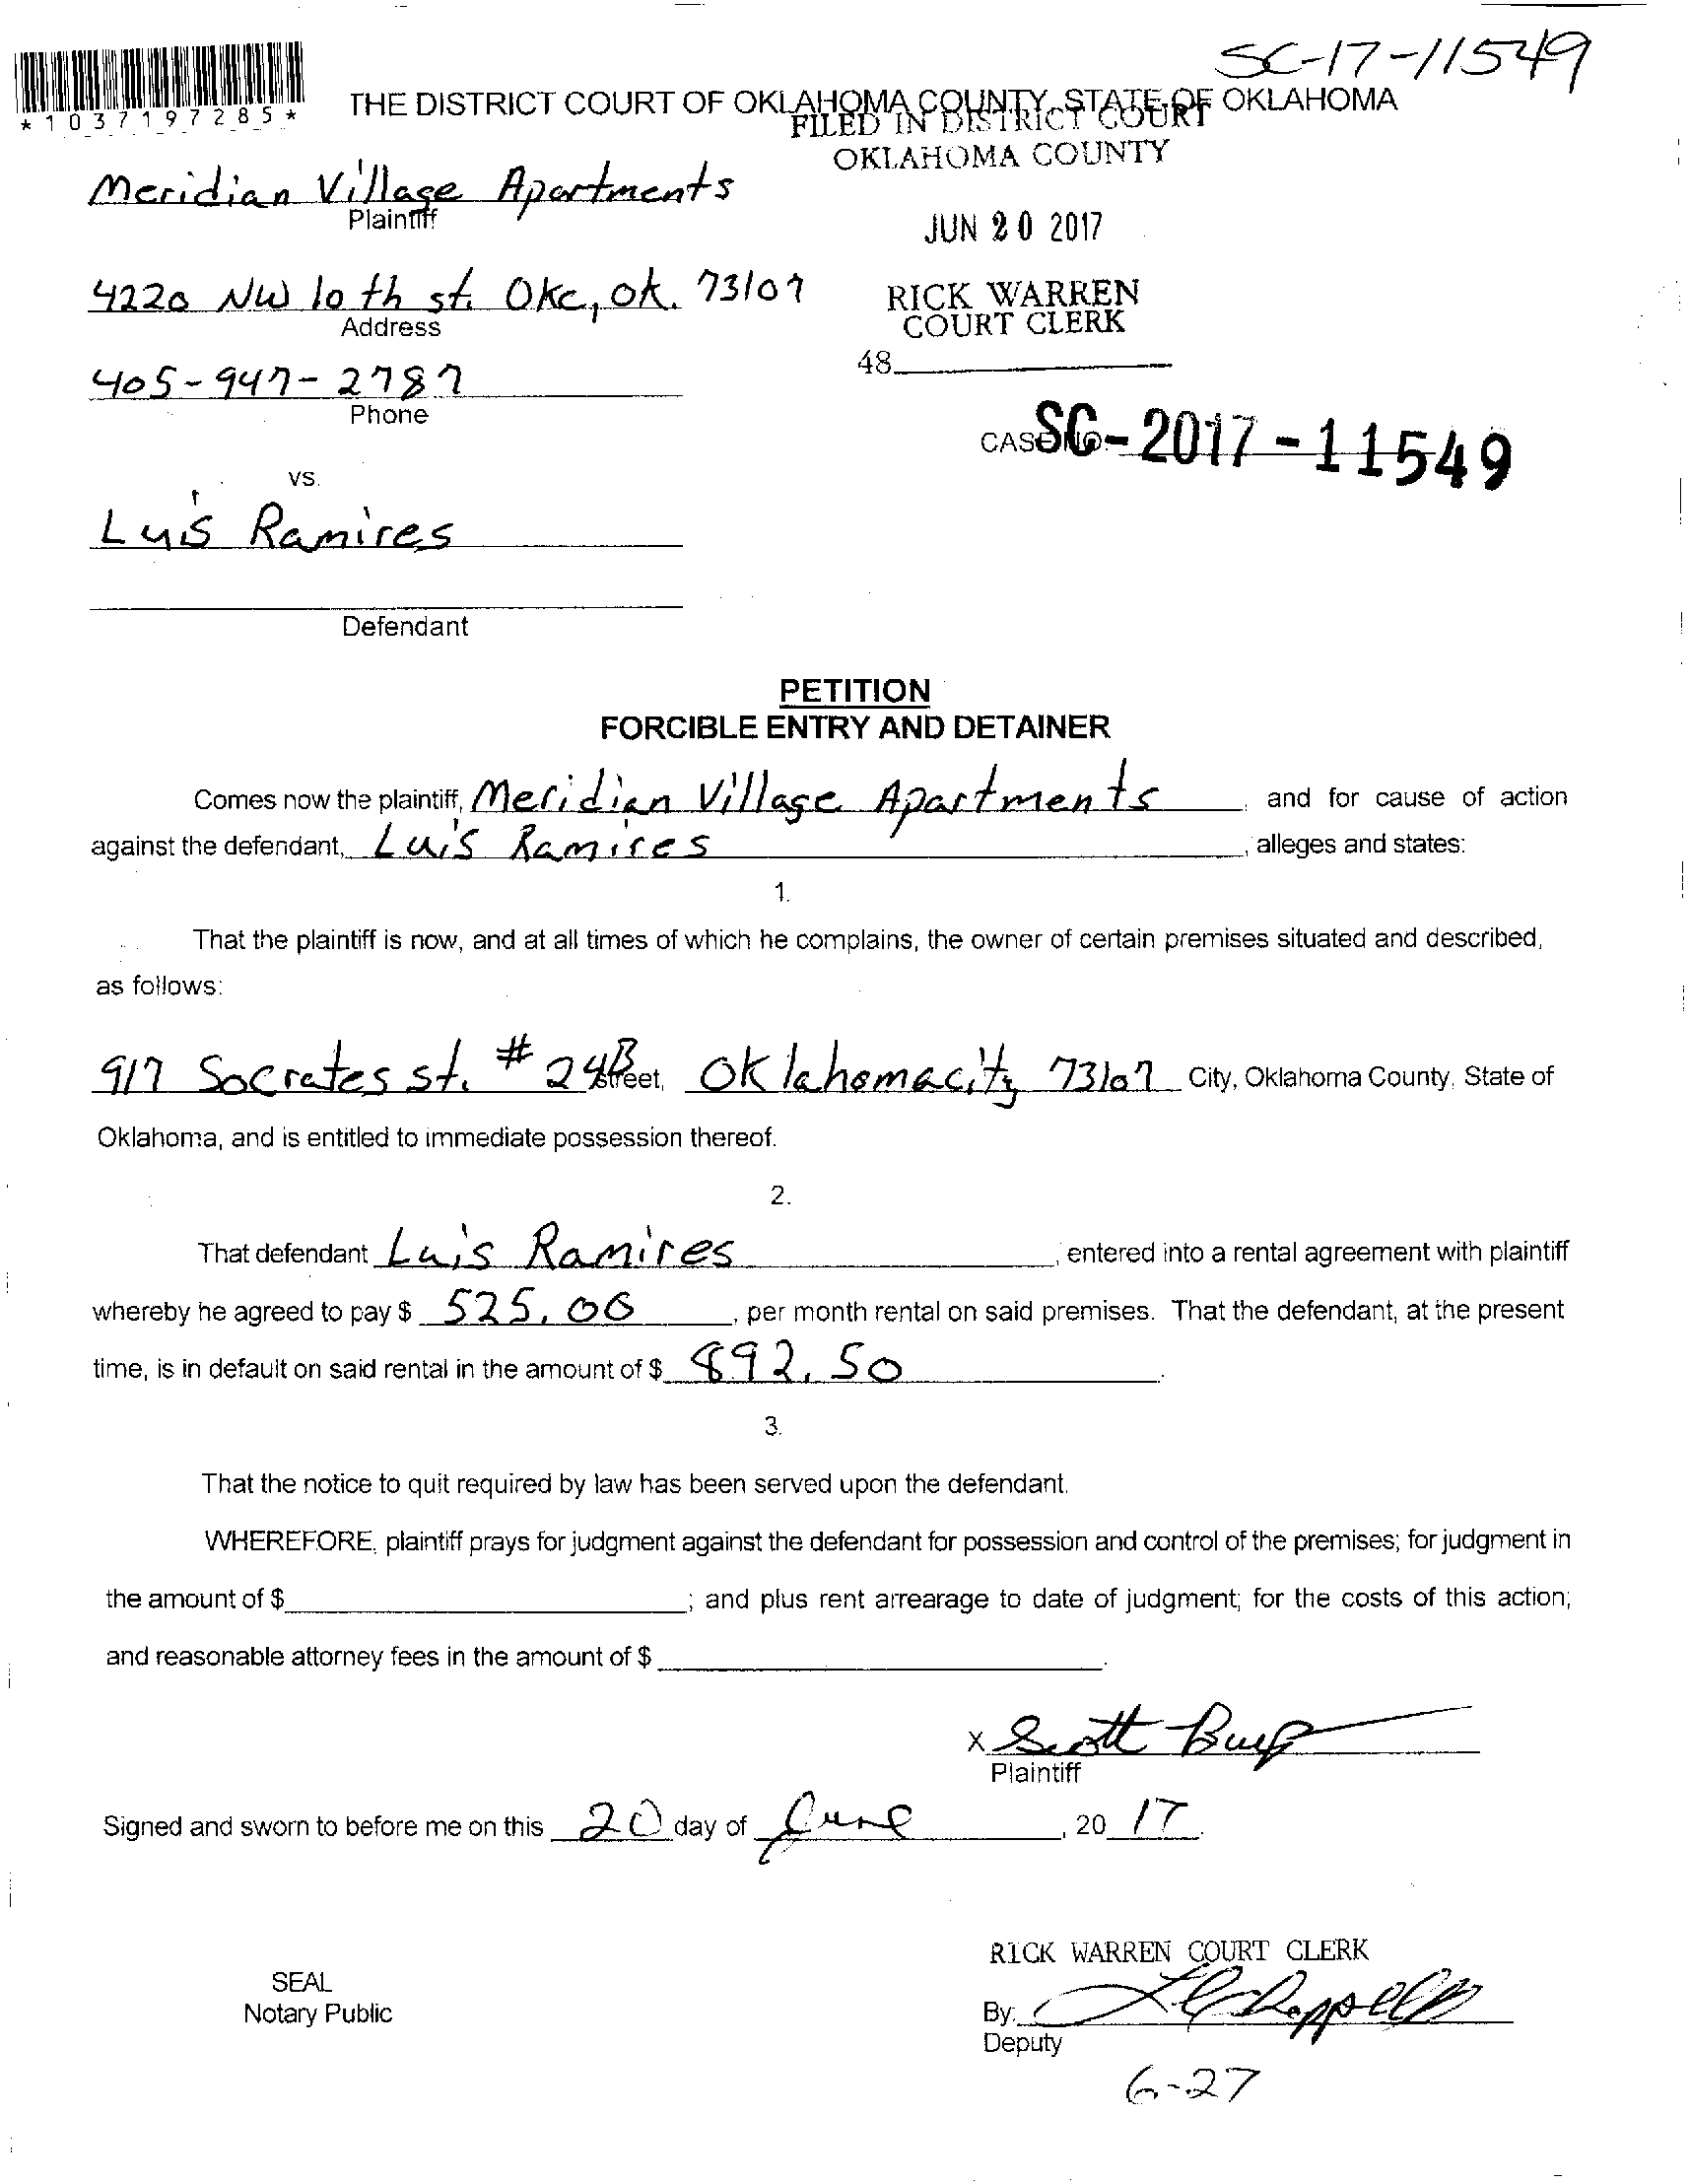 SC-17-11549
*1037197285*
THE DISTRICT COURT OF OKLAHOMA COUNTY, STATE OF OKLAHOMA
FILED IN DISTRICT COURT
OKLAHOMA COUNTY
Meridian Village Apartments
Plaintiff
JUN 20 2017
4220 NW 10th st. Okc, ok. 73107
Address
RICK WARREN
COURT CLERK
48
405-947-2787
Phone
CASE NO. SC-2017-11549
vs.
Luis Ramires
Defendant
PETITION
FORCIBLE ENTRY AND DETAINER
Comes now the plaintiff, Meridian Village Apartments, and for cause of action
against the defendant, Luis Ramires, alleges and states:
1.
That the plaintiff is now, and at all times of which he complains, the owner of certain premises situated and described,
as follows:
917 Socrates st. # 24B Street, Oklahomacity 73107 City, Oklahoma County, State of
Oklahoma, and is entitled to immediate possession thereof.
2.
That defendant Luis Ramires, entered into a rental agreement with plaintiff
whereby he agreed to pay $ 525.00, per month rental on said premises. That the defendant, at the present
time, is in default on said rental in the amount of $ 892.50.
3.
That the notice to quit required by law has been served upon the defendant.
WHEREFORE, plaintiff prays for judgment against the defendant for possession and control of the premises; for judgment in
the amount of $ ; and plus rent arrearage to date of judgment; for the costs of this action;
and reasonable attorney fees in the amount of $ .
x Scott
Plaintiff
Signed and sworn to before me on this 20 day of June, 20 17.
RICK WARREN COURT CLERK
SEAL
Notary Public
By:
Deputy
6-27